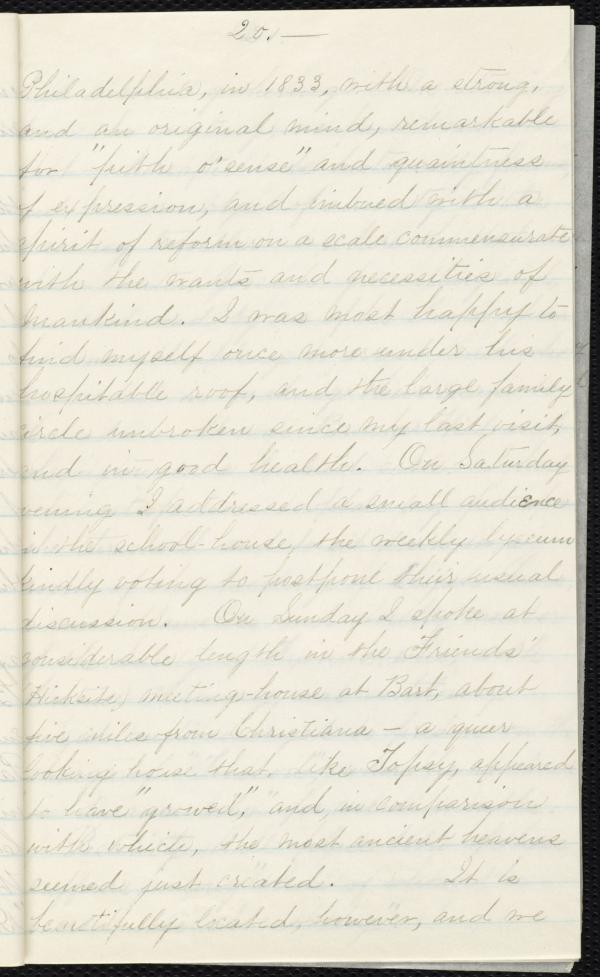 20.—
Philadelphia, in 1833, with a strong,
and an original mind, remarkable
for "pith o' sense" and quaintness
of expression, and imbued with a
spirit of reform on a scale commensurate
with the wants and necessities of
mankind. I was most happy to
find myself once more under his
hospitable roof, and the large family
circle unbroken since my last visit,
and in good health. On Saturday
evening I addressed a small audience
in the school-house, the weekly lyceum
kindly voting to postpone their usual
discussion. On Sunday I spoke at
considerable length in the Friends'
(Hicksite) meeting-house at Bart, about
five miles from Christiana – a queer
looking house that, like Topsy, appeared
to have "growed," and, in comparison
with which, the most ancient heavens
seemed just created. It is
beautifully located, however, and we